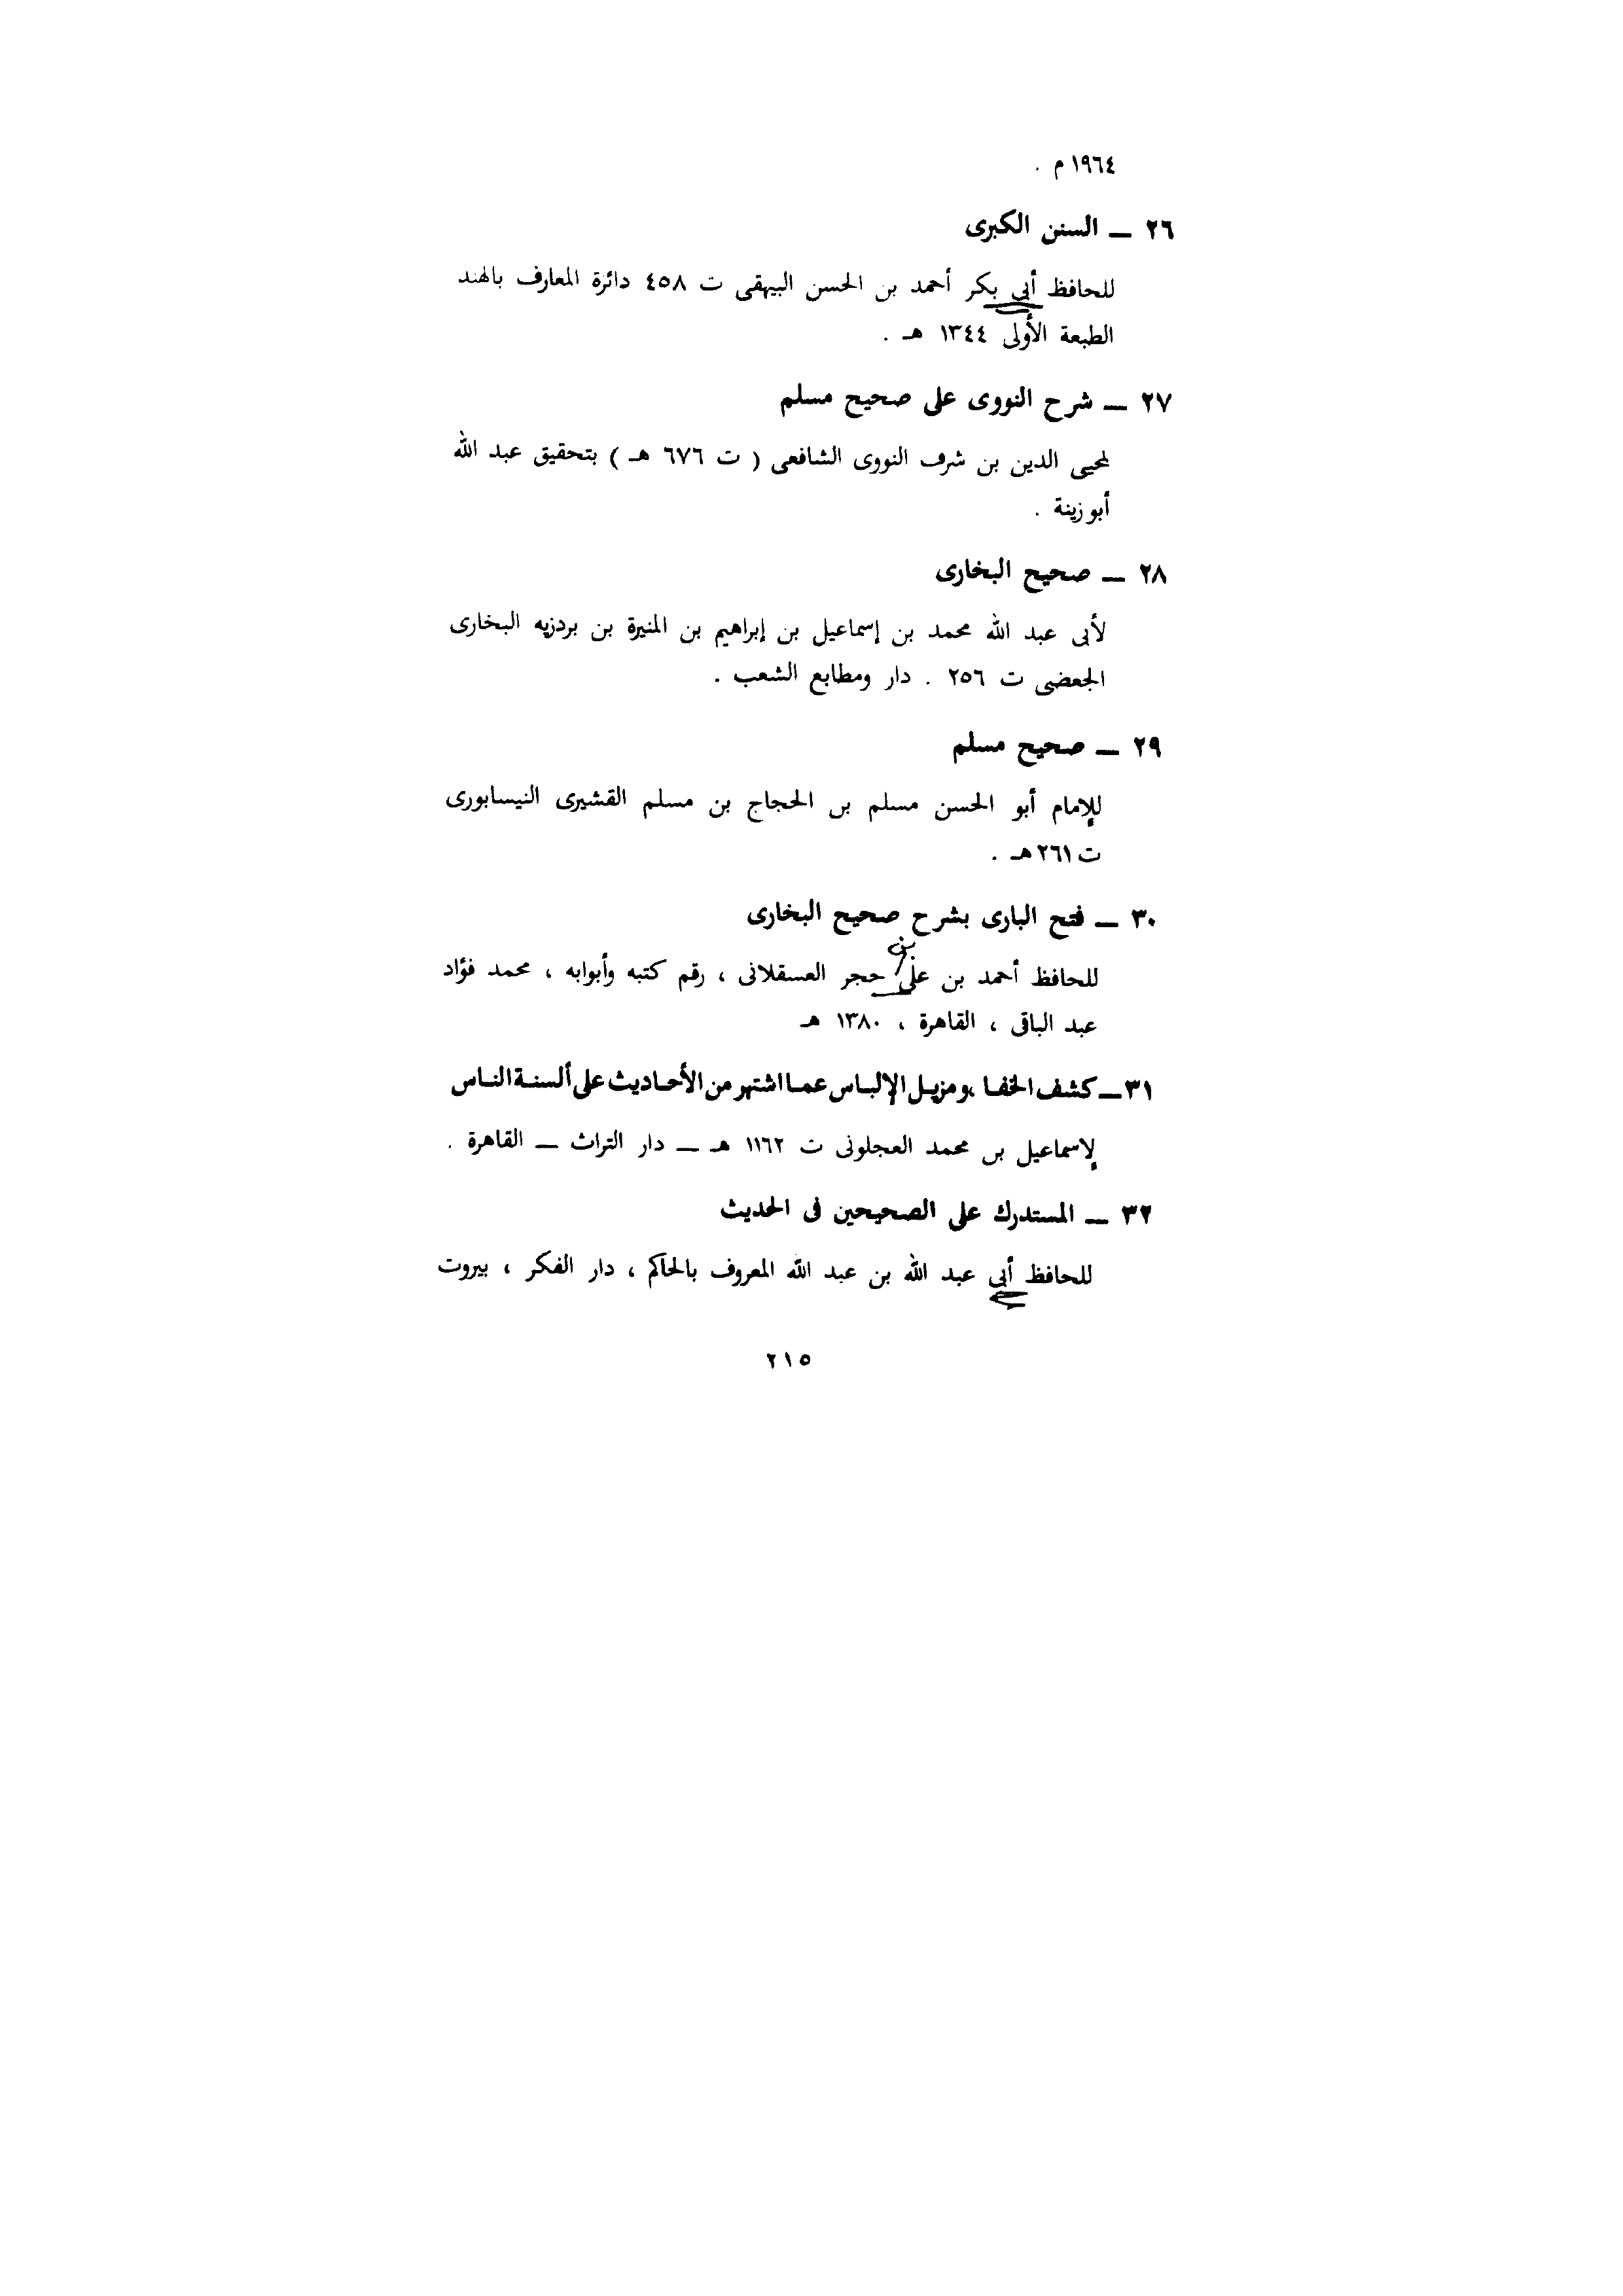 ١٩٦٤ م .
٢٦ ــ السنن الكبرى
للحافظ أبي بكر أحمد بن الحسن البيهقى ت ٤٥٨ دائرة المعارف بالهند
الطبعة الأولى ١٣٤٤ هـ .
٢٧ ــ شرح النووى على صحيح مسلم
لمحيى الدين بن شرف النووى الشافعى ( ت ٦٧٦ هـ ) بتحقيق عبد الله
أبو زينة .
٢٨ ــ صحيح البخارى
لأبى عبد الله محمد بن إسماعيل بن إبراهيم بن المنيرة بن بردزيه البخارى
الجعضى ت ٢٥٦ . دار ومطابع الشعب .
٢٩ ــ صحيح مسلم
للإمام أبو الحسن مسلم بن الحجاج بن مسلم القشيرى النيسابورى
ت ٢٦١ هـ .
٣٠ ــ فتح البارى بشرح صحيح البخارى
للحافظ أحمد بن على بن حجر العسقلانى ، رقم كتبه وأبوابه ، محمد فؤاد
عبد الباقى ، القاهرة ، ١٣٨٠ هـ
٣١ ــ كشف الخفا ، ومزيل الإلباس عما اشتهر من الأحاديث على ألسنة الناس
لإسماعيل بن محمد العجلونى ت ١١٦٢ هـ ــ دار التراث ــ القاهرة .
٣٢ ــ المستدرك على الصحيحين فى الحديث
للحافظ أبي عبد الله بن عبد الله المعروف بالحاكم ، دار الفكر ، بيروت
٢١٥